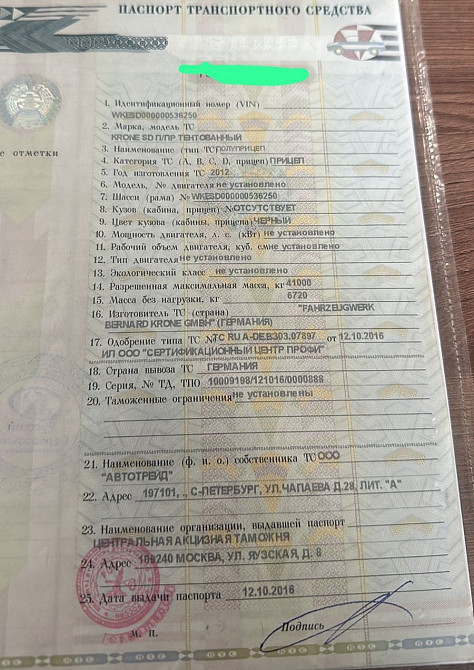 ПАСПОРТ ТРАНСПОРТНОГО СРЕДСТВА
е отметки
1. Идентификационный номер (VIN)
WKESD000000536250
2. Марка, модель ТС
KRONE SD П/ПР ТЕНТОВАННЫЙ
3. Наименование (тип ТС) ПОЛУПРИЦЕП
4. Категория ТС (А, В, С, D, прицеп) ПРИЦЕП
5. Год изготовления ТС 2012
6. Модель, № двигателя не установлено
7. Шасси (рама) № WKESD000000536250
8. Кузов (кабина, прицеп) № ОТСУТСТВУЕТ
9. Цвет кузова (кабины, прицепа) ЧЕРНЫЙ
10. Мощность двигателя, л. с. (кВт) не установлено
11. Рабочий объем двигателя, куб. см не установлено
12. Тип двигателя не установлено
13. Экологический класс не установлено
14. Разрешенная максимальная масса, кг 41000
15. Масса без нагрузки, кг 6720
16. Изготовитель ТС (страна) "FAHRZEUGWERK
BERNARD KRONE GMBH" (ГЕРМАНИЯ)
17. Одобрение типа ТС № ТС RU A-DE.B303.07897 от 12.10.2016
ИЛ ООО "СЕРТИФИКАЦИОННЫЙ ЦЕНТР ПРОФИ"
18. Страна вывоза ТС ГЕРМАНИЯ
19. Серия, № ТД, ТПО 10009198/121016/0000888
20. Таможенные ограничения не установлены
21. Наименование (ф. и. о.) собственника ТС ООО
"АВТОТРЕЙД"
22. Адрес 197101, ,, С-ПЕТЕРБУРГ, УЛ.ЧАПАЕВА Д.28, ЛИТ. "А"
23. Наименование организации, выдавшей паспорт
ЦЕНТРАЛЬНАЯ АКЦИЗНАЯ ТАМОЖНЯ
24. Адрес 109240 МОСКВА, УЛ. ЯУЗСКАЯ, Д. 8
25. Дата выдачи паспорта 12.10.2016
М. П.
Подпись